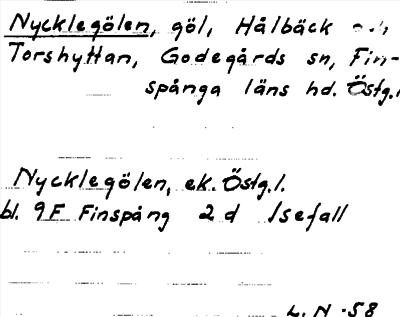 Nycklegölen, göl, Hålbäck och
Torshyttan, Godegårds sn, Fin-
spånga läns hd. Östg.l.
Nycklegölen, ek. Östg.l.
bl. 9F Finspång 2 d Isefall
L. N - 58